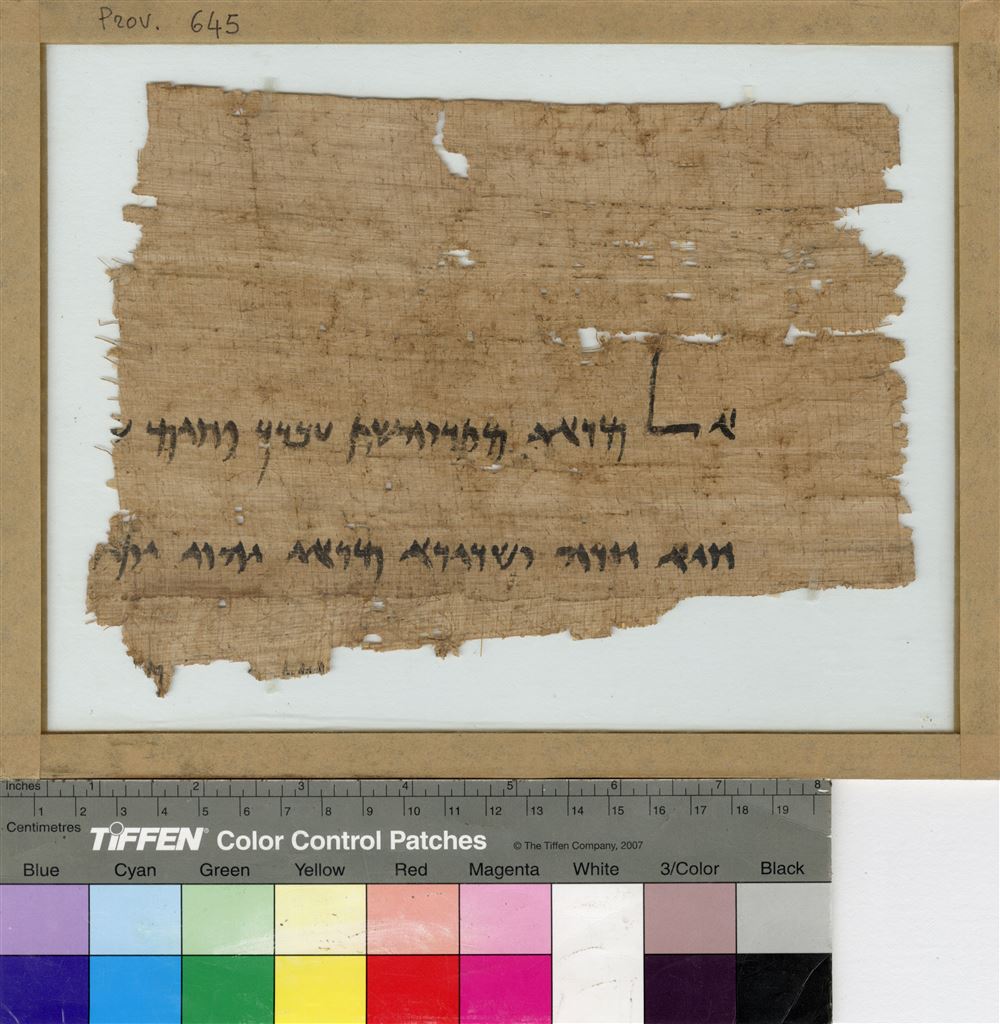 Prov. 645
אל מראי מתרוהשת עבדך פחים
חיא חדה ושרירא מראי יהוי
Inches 1 2 3 4 5 6 7 8
1 2 3 4 5 6 7 8 9 10 11 12 13 14 15 16 17 18 19
Centimetres
TIFFEN® Color Control Patches © The Tiffen Company, 2007
Blue Cyan Green Yellow Red Magenta White 3/Color Black